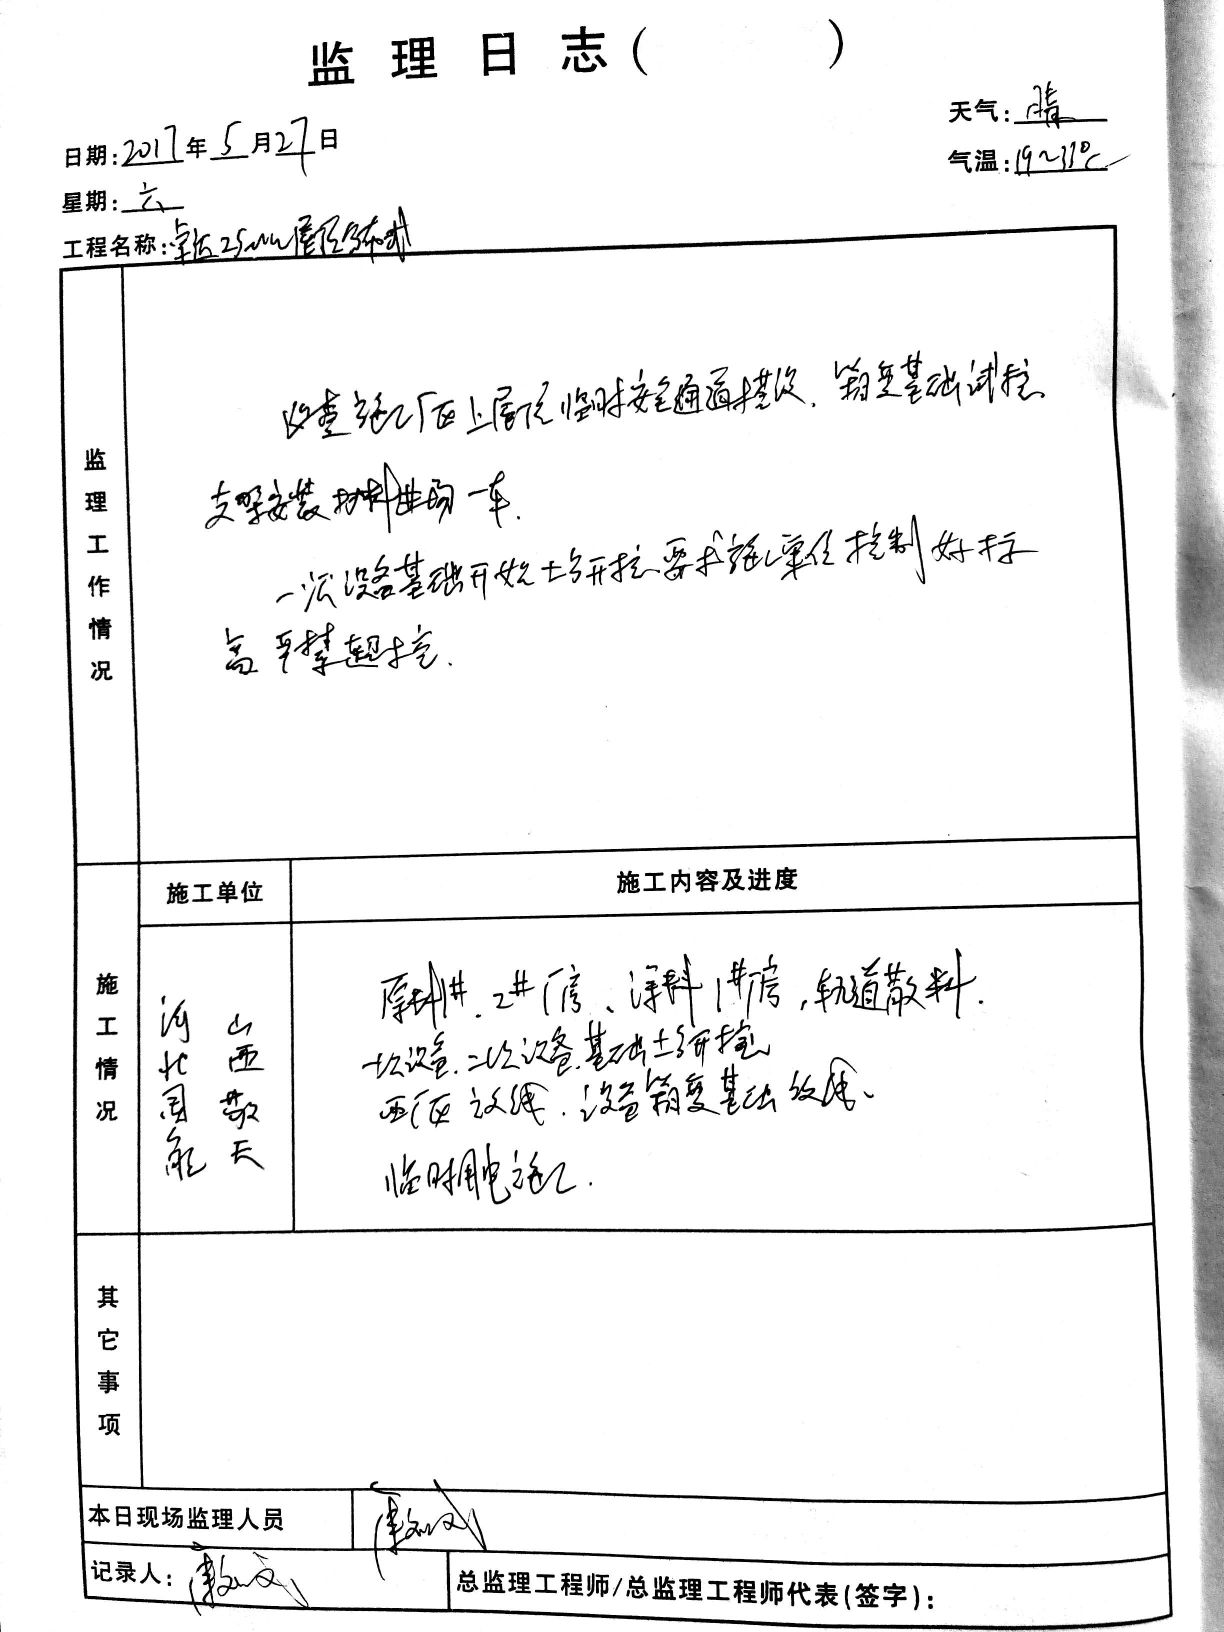 监理日志( )
天气:晴
日期:2017年5月27日
气温:19~31℃
星期:六
工程名称:卓达25MW屋顶分布式
监理工作情况
检查施工厂区上屋顶临时安全通道搭设、箱变基础试挖
支架安装材料进场一车.
一次设备基础开始土方开挖要求施工单位控制好标
高 严禁超挖.
施工情况
施工单位
施工内容及进度
河北国能
山西敬天
原料1#、2#厂房、涂料1#厂房,轨道散料.
一次设备、二次设备基础土方开挖
西厂区放线.设备箱变基础放线、
临时用电施工.
其它事项
本日现场监理人员
记录人:
总监理工程师/总监理工程师代表(签字):